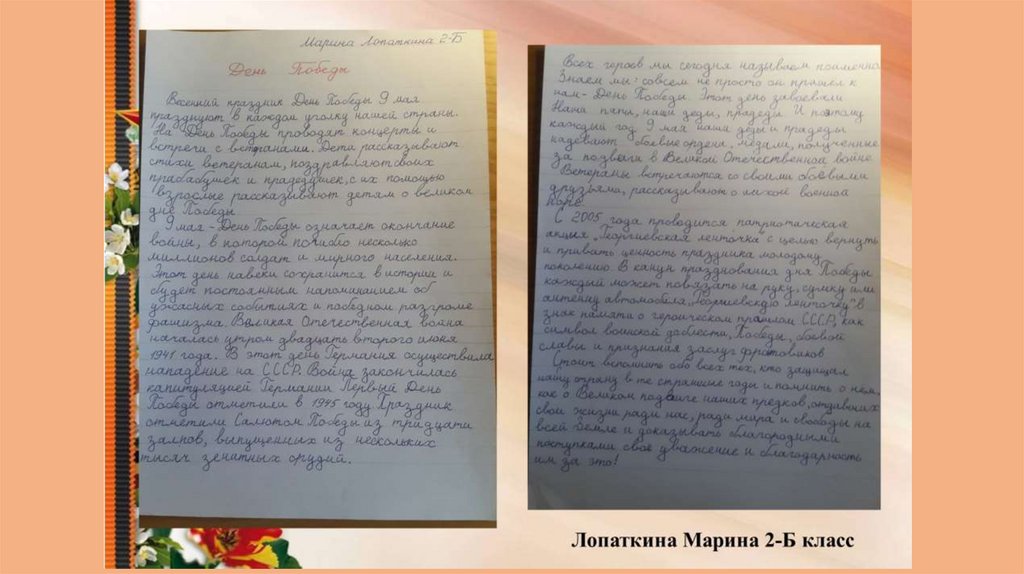 Марина Лопаткина 2-Б
День Победы
Весенний праздник День Победы 9 мая
празднуют в каждом уголку нашей страны.
На День Победы проводят концерты и
встречи с ветеранами. Дети рассказывают
стихи ветеранам, поздравляют своих
прабабушек и прадедушек, с их помощью
взрослые рассказывают детям о великом
дне Победы
9 мая - День Победы означает окончание
войны, в которой погибло несколько
миллионов солдат и мирного населения.
Этот день навеки сохранится в истории и
будет постоянным напоминанием об
ужасных событиях и победном разгроме
фашизма. Великая Отечественная война
началась утром двадцать второго июня
1941 года. В этот день Германия осуществила
нападение на СССР. Война закончилась
капитуляцией Германии Первый День
Победы отметили в 1945 году. Праздник
отметили Салютом Победы из тридцати
залпов, выпущенных из нескольких
тысяч зенитных орудий.
Всех героев мы сегодня называем поимённо
Знаем мы: совсем не просто он пришёл к
нам - День Победы. Этот день завоевали
Наши папы, наши деды, прадеды. И поэтому
каждый год 9 мая наши деды и прадеды
надевают боевые ордена, медали, полученные
за подвиги в Великой Отечественной войне.
Ветераны встречаются со своими боевыми
друзьями, рассказывают о лихой военной
поре.
С 2005 года проводится патриотическая
акция „Георгиевская ленточка" с целью вернуть
и привить ценность праздника молодому
поколению. В канун празднования дня Победы
каждый может повязать на руку, сумку или
антенну автомобиля „Георгиевскую ленточку" в
знак памяти о героическом прошлом СССР, как
символ воинской доблести, Победы, боевой
славы и признания заслуг фронтовиков
Стоит вспомнить обо всех тех, кто защищал
нашу страну в те страшные годы и помнить о нем,
как о Великом подвиге наших предков, отдавших
свои жизни ради нас, ради мира и свободы на
всей Земле и доказывать благородными
поступками своё уважение и благодарность
им за это!
Лопаткина Марина 2-Б класс